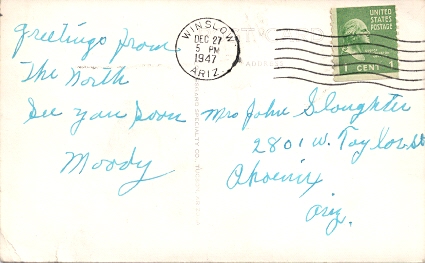 Greetings from
The North
See you soon
Moody
WINSLOW.
DEC 27
5 PM
1947
ARIZ.
UNITED
STATES
POSTAGE
1 CENT 1
Mrs John Sloughter
2801 W. Taylor St
Phoenix
Ariz.